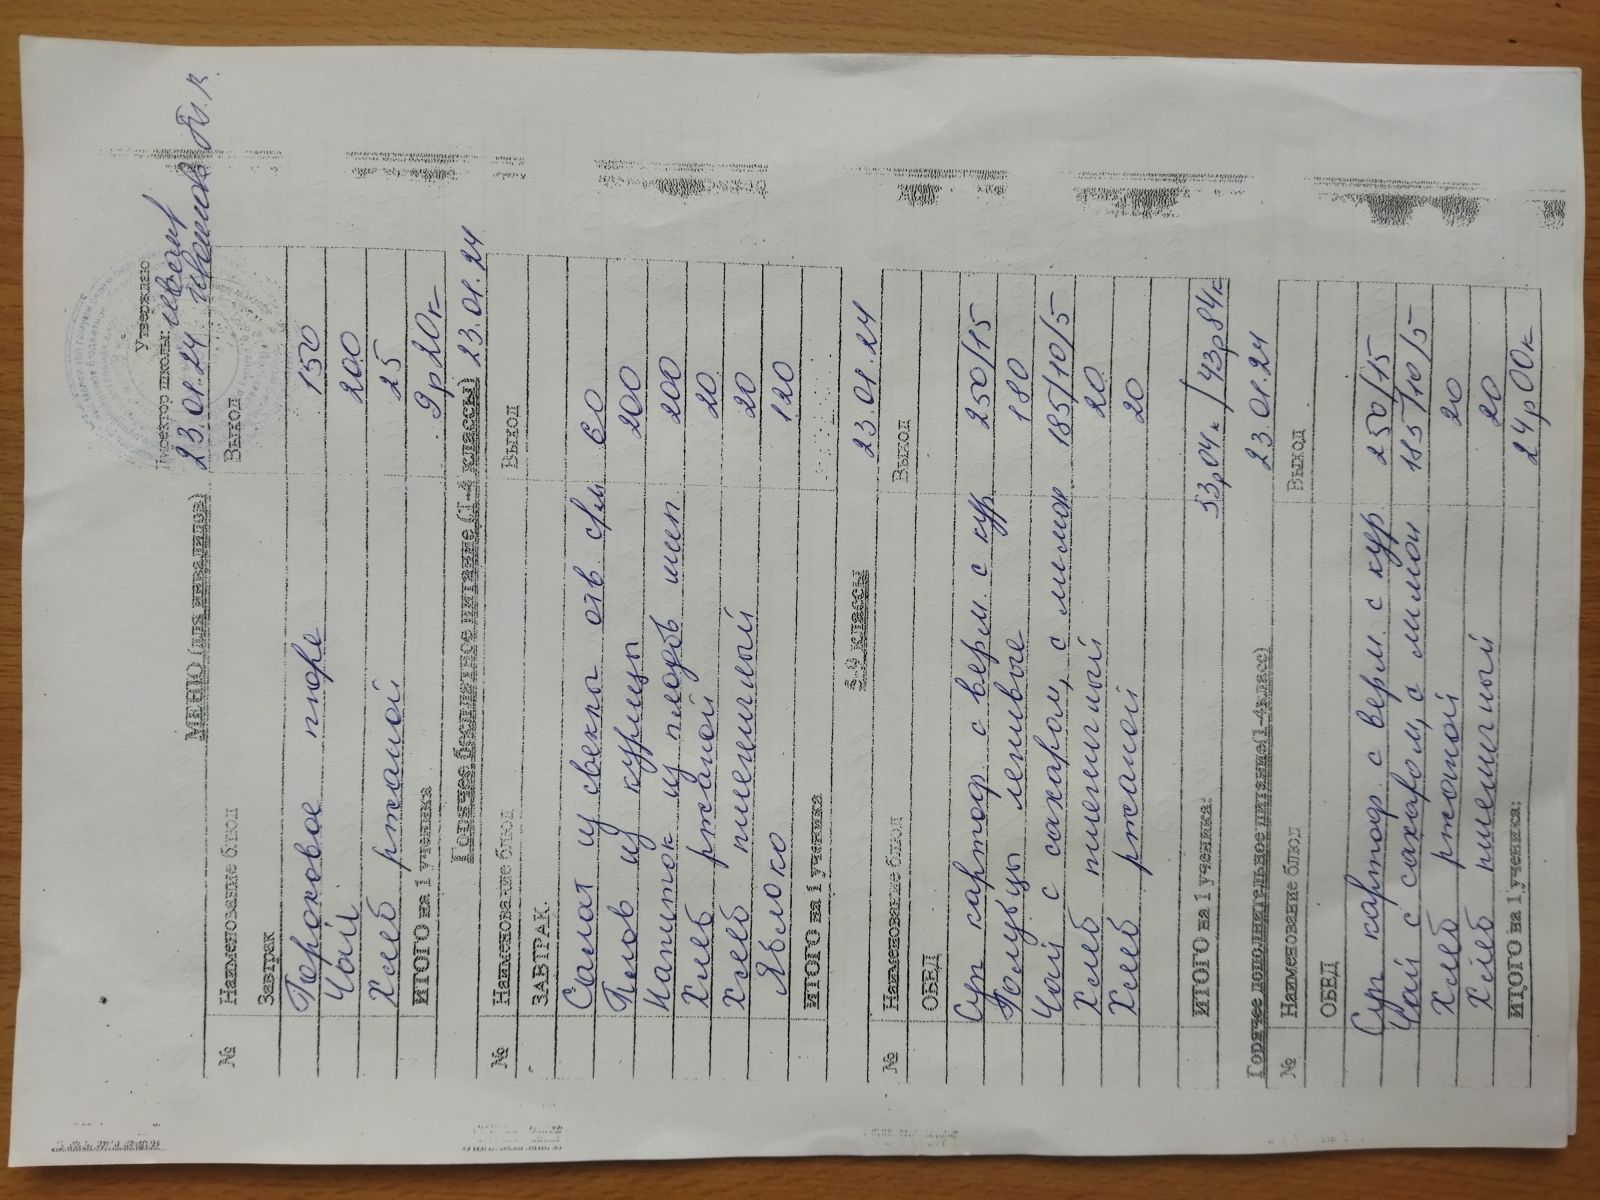 Утверждаю
Директор школы:
23.01.24
МЕНЮ (для инвалидов)
№ Наименование блюд Выход
Завтрак
Гороховое пюре 150
Чай 200
Хлеб ржаной 25
ИТОГО на 1 ученика 9р20к
Горячее бесплатное питание (1-4 классы) 23.01.24
№ Наименование блюд Выход
ЗАВТРАК.
Салат из свеклы отв 60
Плов из курицы 200
Напиток из плодов шип 200
Хлеб ржаной 20
Хлеб пшеничный 20
Яблоко 120
ИТОГО на 1 ученика
5-9 классы 23.01.24
№ Наименование блюд Выход
ОБЕД
Суп картоф. с верм. с кур 250/15
Голубцы ленивые 180
Чай с сахаром, с лимон 185/10/5
Хлеб пшеничный 20
Хлеб ржаной 20
ИТОГО на 1 ученика: 53р04к /43р84к
Горячее дополнительное питание(1-4класс) 23.01.24
№ Наименование блюд Выход
ОБЕД
Суп картоф. с верм с кур 250/15
Чай с сахаром, с лимон 185/10/5
Хлеб ржаной 20
Хлеб пшеничный 20
ИТОГО на 1 ученика: 24р00к